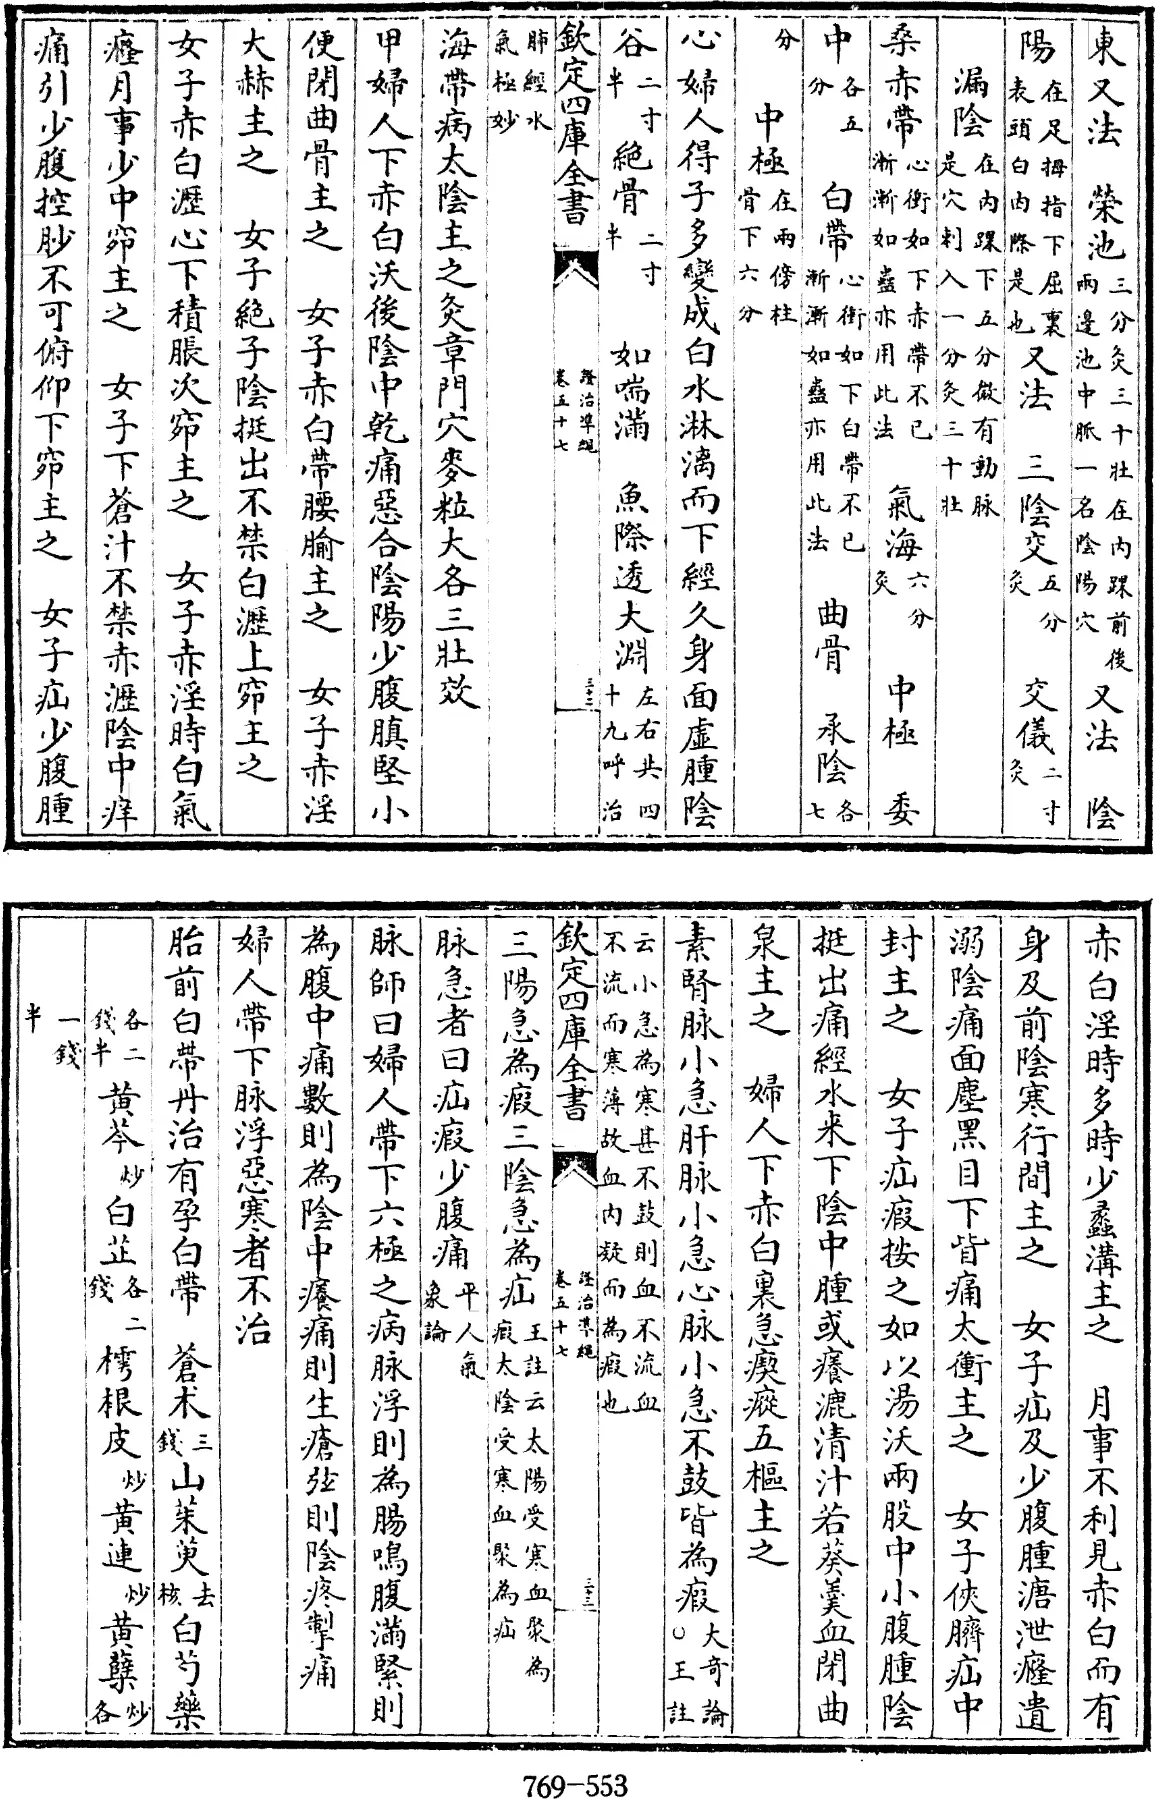 東又法　榮池三分灸三十壯在內踝前後兩邊池中脈一名陰陽穴又法　陰
陽在足拇指下屈裏表頭白肉際是也又法　三陰交五分灸　交儀二寸灸
漏陰在內踝下五分微有動脉是穴刺入一分灸三十壯
桑赤帶心衝如下赤帶不已漸漸如蠱亦用此法　氣海六分灸　中極　委
中各五分　白帶心衝如下白帶不已漸漸如蠱亦用此法　曲骨　承陰各七
分　中極在兩傍柱骨下六分
心婦人得子多變成白水淋漓而下經久身面虛腫陰
谷二寸半絶骨二寸半　如喘滿　魚際透大淵左右共四十九呼治
肺經水氣極妙
欽定四庫全書　證治準繩卷五十七　三十二
海帶病太陰主之灸章門穴麥粒大各三壯效
甲婦人下赤白沃後陰中乾痛惡合陰陽少腹䐜堅小
便閉曲骨主之　女子赤白帶腰腧主之　女子赤淫
大赫主之　女子絶子陰挺出不禁白瀝上窌主之
女子赤白瀝心下積脹次窌主之　女子赤淫時白氣
癃月事少中窌主之　女子下蒼汁不禁赤瀝陰中痒
痛引少腹控䏚不可俯仰下窌主之　女子疝少腹腫
赤白淫時多時少蠡溝主之　月事不利見赤白而有
身及前陰寒行間主之　女子疝及少腹腫溏泄癃遺
溺陰痛面塵黑目下眥痛太衝主之　女子俠臍疝中
封主之　女子疝瘕按之如以湯沃兩股中小腹腫陰
挺出痛經水来下陰中腫或癢漉清汁若葵羹血閉曲
泉主之　婦人下赤白裏急瘈瘲五樞主之
素腎脉小急肝脉小急心脉小急不鼓皆為瘕大奇論○王註
云小急為寒甚不鼓則血不流血不流而寒薄故血內凝而為瘕也
欽定四庫全書　證治準繩卷五十七　三十三
三陽急為瘕三陰急為疝王註云太陽受寒血聚為瘕太陰受寒血聚為疝
脉急者曰疝瘕少腹痛平人氣象論
脉師曰婦人帶下六極之病脉浮則為腸鳴腹滿緊則
為腹中痛數則為陰中癢痛則生瘡弦則陰疼掣痛
婦人帶下脉浮惡寒者不治
胎前白帶丹治有孕白帶　蒼术三錢山茱萸去核白芍藥
各二錢半黃芩炒白芷各二錢　樗根皮炒黃連炒黃蘗炒各
一錢半
769-553